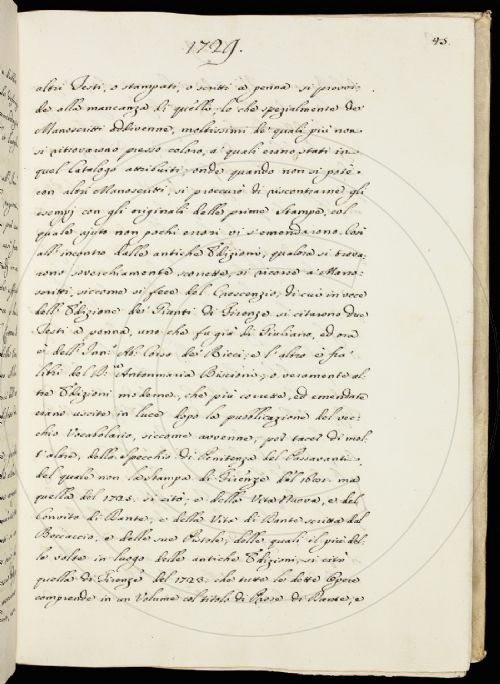 1729.
45.
altri Testi, o stampati, o scritti a penna si provvi-
de alla mancanza di quello; lo che spezialmente de'
Manoscritti addivenne, moltissimi de' quali più non
si ritrovavano presso coloro, a' quali erano stati in
quel Catalogo attribuiti; onde quando non si potè
con altri Manoscritti, si proccurò di riscontrarne gli
esempj con gli originali delle prime Stampe, col
quale ajuto non pochi errori vi s'emendarono. Così
all'incontro dalle antiche Edizioni, qualora si trova-
rono soverchiamente scorrette, si ricorse a' Mano-
scritti, siccome si fece del Crescenzio, di cui in vece
dell'Edizione dei Giunti di Firenze si citarono due
Testi a penna, uno che fu già di Giuliano, ed ora
è dell' Ab: Corso de' Ricci; e l'altro è fra'
libri del Antonmaria Biscioni; o veramente al-
tre Edizioni moderne, che più corrette, ed emendate
erano uscite in luce dopo la pubblicazione del vec-
chio Vocabolario, siccome avvenne, pel tacer di mol-
t'altre, dello Specchio di Penitenza del Passavanti,
del quale non la Stampa di Firenze del ma
quella del 1725. si citò; e della Vita Nuova, e del
Convito di Dante; e della Vita di Dante scritta dal
Boccaccio, e delle sue Pistole; delle quali il più del-
le volte in luogo delle antiche Edizioni, si citò
quella di Firenze del 1723. che tutte le dette Opere
comprende in un Volume col titolo di Prose di Dante; e